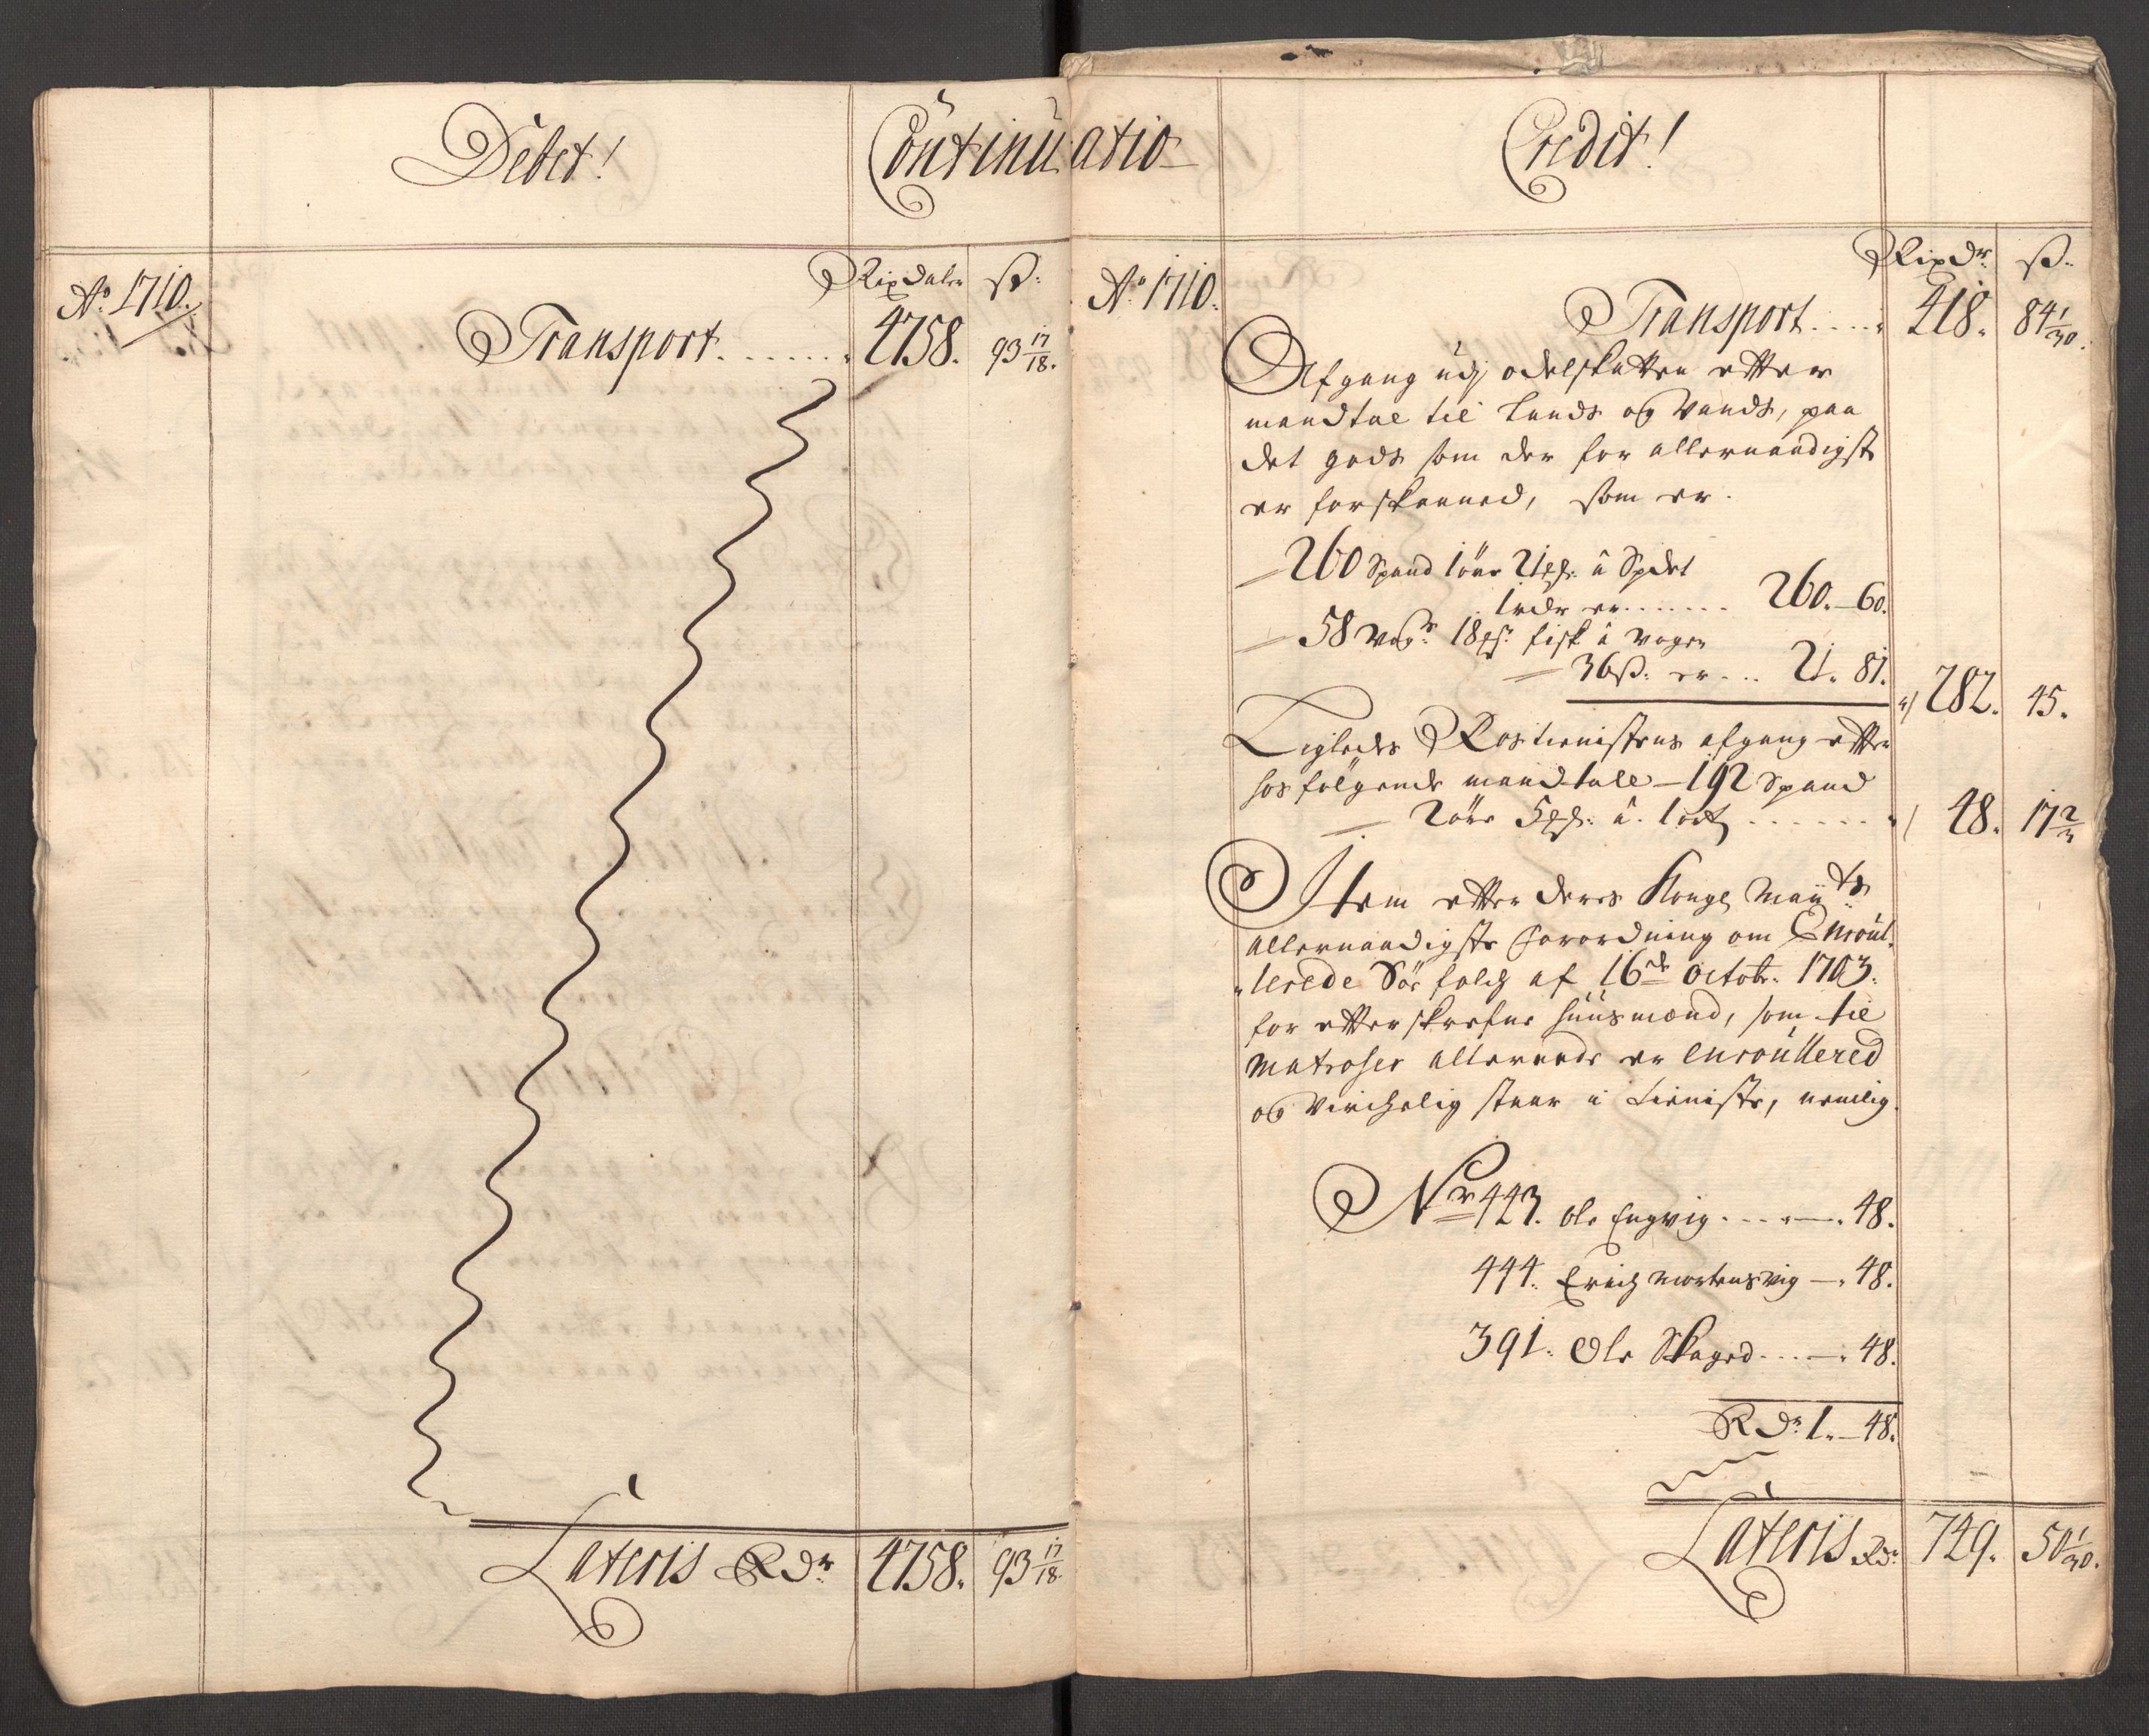 Debet!
Continuatio
Ao. 1710.
Rixdaler ß:
Transport. . . . . . . 4758. 93 17/18.
Lateris Rdr 4758. 93 17/18.
Credit!
Ao. 1710.
Rixdr. ß.
Transport . . . . 418. 84 1/30.
Afgang udj odelskatten efter
mandtal til Lands og Vands, paa
det gods som der for allernaadigst
er forskaaned, som er.
260 Spand 1 øre 21 ps: à Spdet
1 rdr er . . . . . . . 260. 60.
58 Vog: 18 ps: fisk à Vogen
36 ß. er . . . 21. 81.
282. 45.
Ligledes Rostienistens afgang efter
hos følgende mandtall 192 Spand
2 øre 5 ps: à. 1 ort . . . . . . 48. 17 2/3
Item efter deres Kongl Mayts
allernaadigste forordning om Enroul-
lerede Søe folch af 16de octobr. 1703.
for efterskrefne huusmænd, som til
matroser allerede er enroullered
og Virchelig staar i tieniste, nemlig.
Nr. 443. Ole Engvig . . . . 48.
444. Erich Mortensvig 48.
391. Ole Skaged . . . 48.
Rdr 1. 48.
Lateris Rdr 749. 50 1/30.